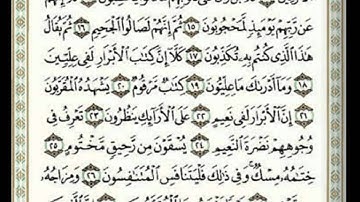 عَن رَّبِّهِمْ يَوْمَئِذٍ لَّمَحْجُوبُونَ ١٥ ثُمَّ إِنَّهُمْ لَصَالُوا۟ ٱلْجَحِيمِ ١٦ ثُمَّ يُقَالُ
هَٰذَا ٱلَّذِى كُنتُم بِهِۦ تُكَذِّبُونَ ١٧ كَلَّآ إِنَّ كِتَٰبَ ٱلْأَبْرَارِ لَفِى عِلِّيِّينَ
١٨ وَمَآ أَدْرَىٰكَ مَا عِلِّيُّونَ ١٩ كِتَٰبٌ مَّرْقُومٌ ٢٠ يَشْهَدُهُ ٱلْمُقَرَّبُونَ
٢١ إِنَّ ٱلْأَبْرَارَ لَفِى نَعِيمٍ ٢٢ عَلَى ٱلْأَرَآئِكِ يَنظُرُونَ ٢٣ تَعْرِفُ فِى
وُجُوهِهِمْ نَضْرَةَ ٱلنَّعِيمِ ٢٤ يُسْقَوْنَ مِن رَّحِيقٍ مَّخْتُومٍ ٢٥
خِتَٰمُهُۥ مِسْكٌ وَفِى ذَٰلِكَ فَلْيَتَنَافَسِ ٱلْمُتَنَٰفِسُونَ ٢٦ وَمِزَاجُهُۥ